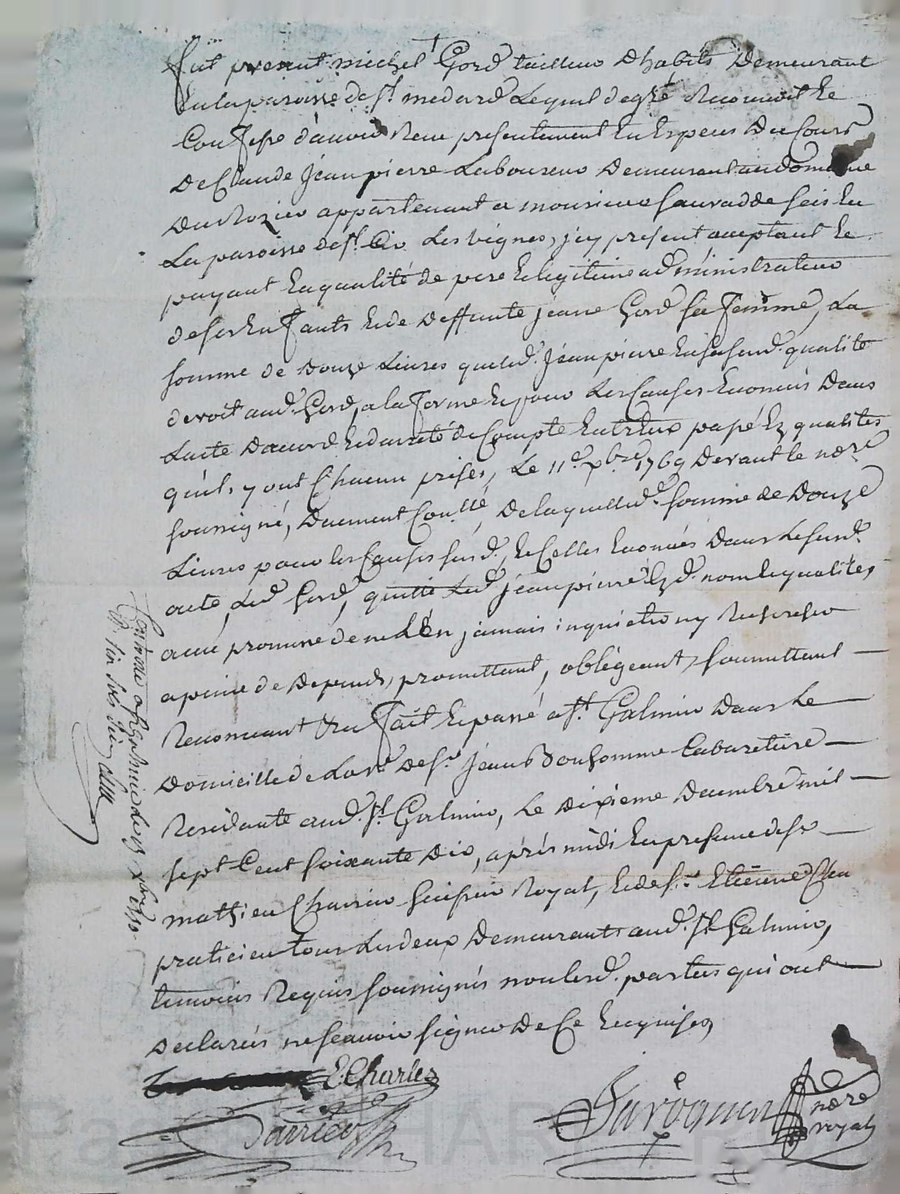 fut present michel Gord tailleur d'habits Demeurant
En la paroisse de st. medard Lequel de gré Reconnoit Et
Confesse d'avoir Reçu presentement En Especes De Cours
De Claude jeanpierre Laboureur Demeurant au domaine
Du Rozier appartenant a monsieur Sauvadde scis En
La paroisse de st. Cir Les vignes, jcy present acceptant Et
payant En qualité de pere Et legitime administrateur
de ses Enfants Et de deffunte jeane Gord sa femme, La
somme de Douze Livres que led. jeanpierre En sa susd. qualité
devoit aud. Gord, a la forme Et pour Les Causes Enoncés Dans
L'acte D'acord Et d'areté de Compte Entr'Eux passé Ez qualites
qu'ils y ont Chacun prises, Le 11e. xbre. 1769 Devant le nore.
soussigné, Duement Conllé, De laquelle d. somme de Douze
Livres pour les Causes susd. Et Celles Enoncées Dans Le susd.
acte, Led. Gord, quitte Led. jeanpierre Ezd. noms Et qualités,
avec promesse de ne L'En jamais inquieter ny Rechercher
a peine de Depends, promettant, obligeant, soumettant
Renonçant &a fait Et passé a st. Galmier Dans Le
Domicille de De sr. jean Bonhomme Cabaretier
Residante aud. st. Galmier, Le Dixieme Decembre mil
sept Cent soixante Dix, après midi En presence de sr.
mathieu Charrier huissier Royal, Et de sr. Etienne Cha
praticien tous Les deux Demeurants aud. st. Galmier,
temoins Requis soussignés non lesd. parties qui ont
Declarés ne sçavoir signer De Ce Enquises
E: Charles
Darrieu
Duroguier nore
royal
Controlé a st galmier Le 13 xbre 1770
R. six sols
Pascal CHAR